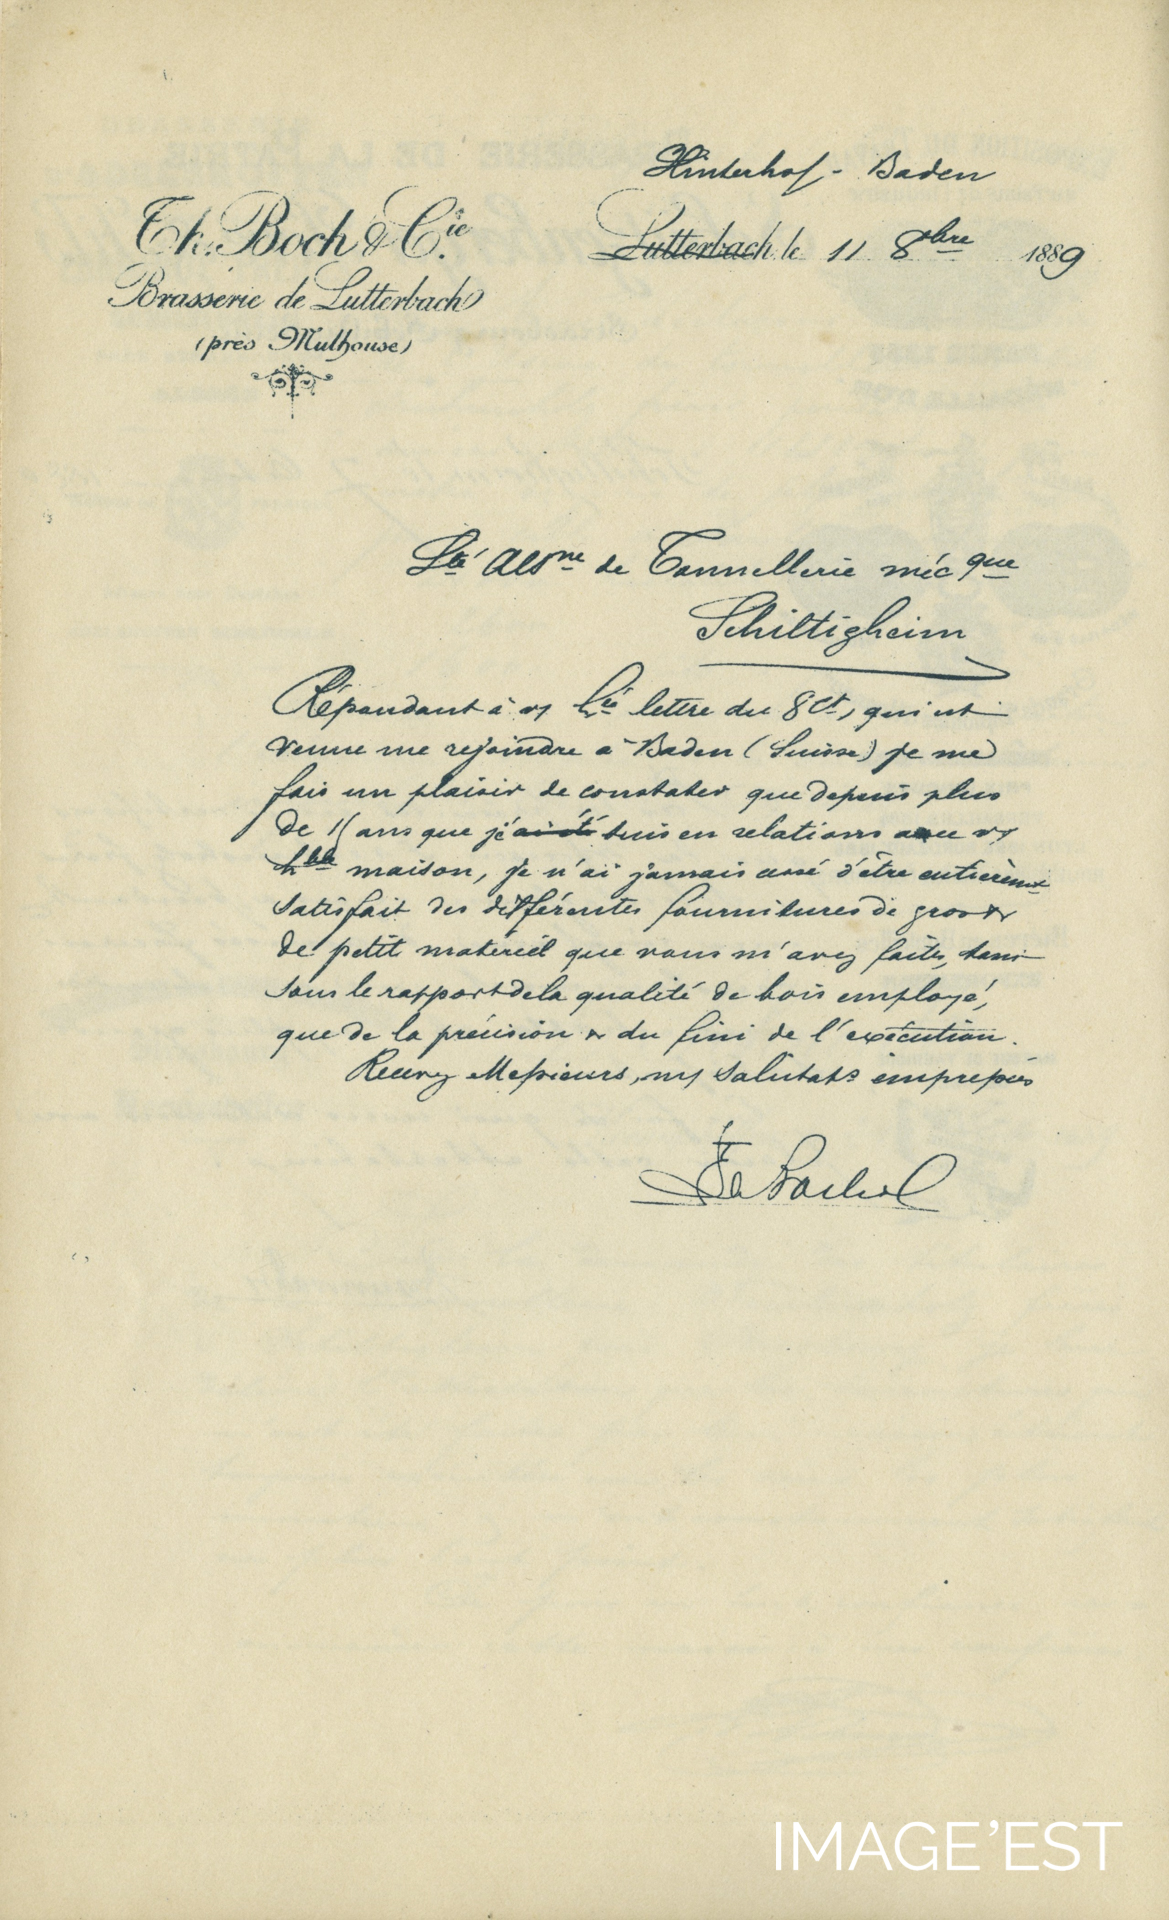 Hinterhof - Baden
Th. Boch & Cie.
Lutterbach le 11 8bre 1889
Brasserie de Lutterbach
(près Mulhouse)
Sté Alsne de Tonnellerie mécque
Schiltigheim
Répondant à vs hrée lettre du 8 ct, qui est
venue me rejoindre à Baden (Suisse) je me
fais un plaisir de constater que depuis plus
de 15 ans que j'ai été suis en relations avec vs
hble maison, je n'ai jamais cessé d'être entièremt
satisfait des différentes fournitures de gros &
de petit matériel que vous m'avez faites, tant
sous le rapport de la qualité de bois employé,
que de la précision & du fini de l'exécution.
Recevez Messieurs, mes salutats empressées
IMAGE'EST